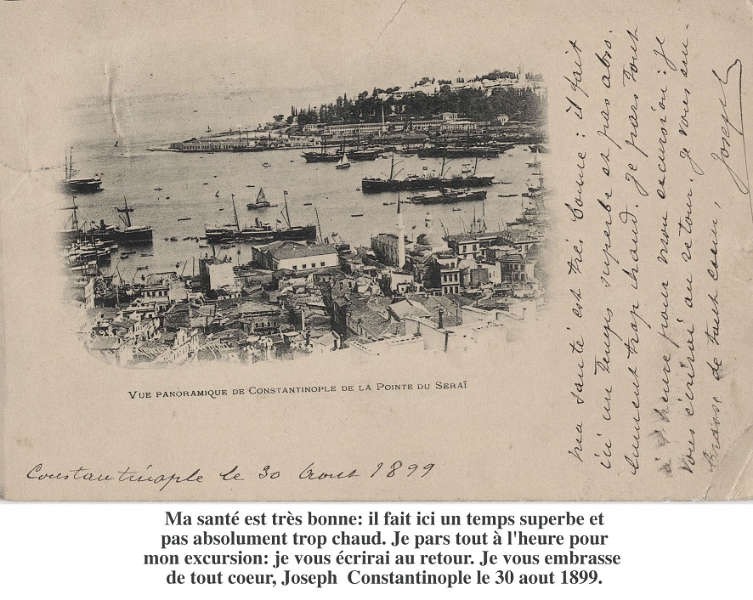 VUE PANORAMIQUE DE CONSTANTINOPLE DE LA POINTE DU SERAÏ
Constantinople le 30 Aout 1899
ma santé est très bonne : il fait
ici un temps superbe et pas abso-
lument trop chaud. Je pars tout
à l'heure pour mon excursion : je
vous écrirai au retour. Je vous em-
brasse de tout coeur,
Joseph
Ma santé est très bonne: il fait ici un temps superbe et
pas absolument trop chaud. Je pars tout à l'heure pour
mon excursion: je vous écrirai au retour. Je vous embrasse
de tout coeur, Joseph Constantinople le 30 aout 1899.